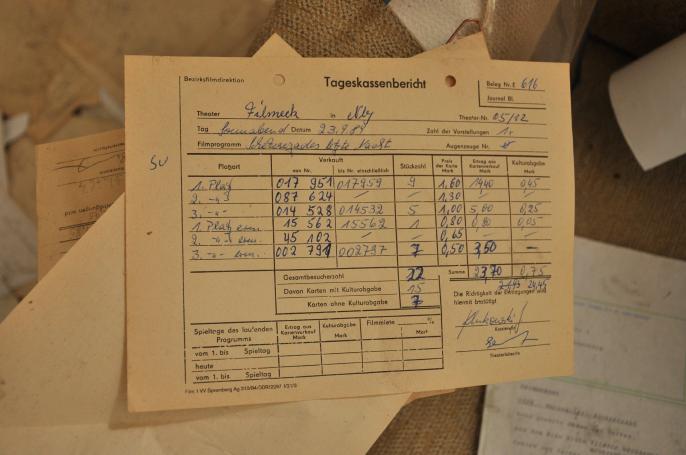 Bezirksfilmdirektion
Tageskassenbericht
Beleg Nr. E 616
Journal Bl.
Theater Filmeck in Nby Theater-Nr. 05/12
Tag Sonnabend Datum 23.9.89 Zahl der Vorstellungen 1x
Filmprogramm letzte Nacht Augenzeuge Nr.
SU
Platzart Verkauft Stückzahl Preis der Karte Mark Ertrag aus Kartenverkauf Mark Kulturabgabe Mark
von Nr. bis Nr. einschließlich
1. Platz 017 951 017959 9 1,60 14,40 0,45
2. -"- 087 624 — — 1,30 — —
3. -"- 014 528 014532 5 1,00 5,00 0,25
1. Platz erm. 15 562 15562 1 0,80 0,80 0,05
2. -"- erm. 45 102 — — 0,65 — —
3. -"- erm. 002 791 002797 7 0,50 3,50 —
Gesamtbesucherzahl 22 Summe 23,70 0,75
Davon Karten mit Kulturabgabe 15 24,45
Karten ohne Kulturabgabe 7
Die Richtigkeit der Eintragungen wird hiermit bestätigt
Kassierer
Theaterleiter
Spieltage des laufenden Programms Ertrag aus Kartenverkauf Mark Kulturabgabe Mark Filmmiete % Mark
vom 1. bis Spieltag
heute
vom 1. bis Spieltag